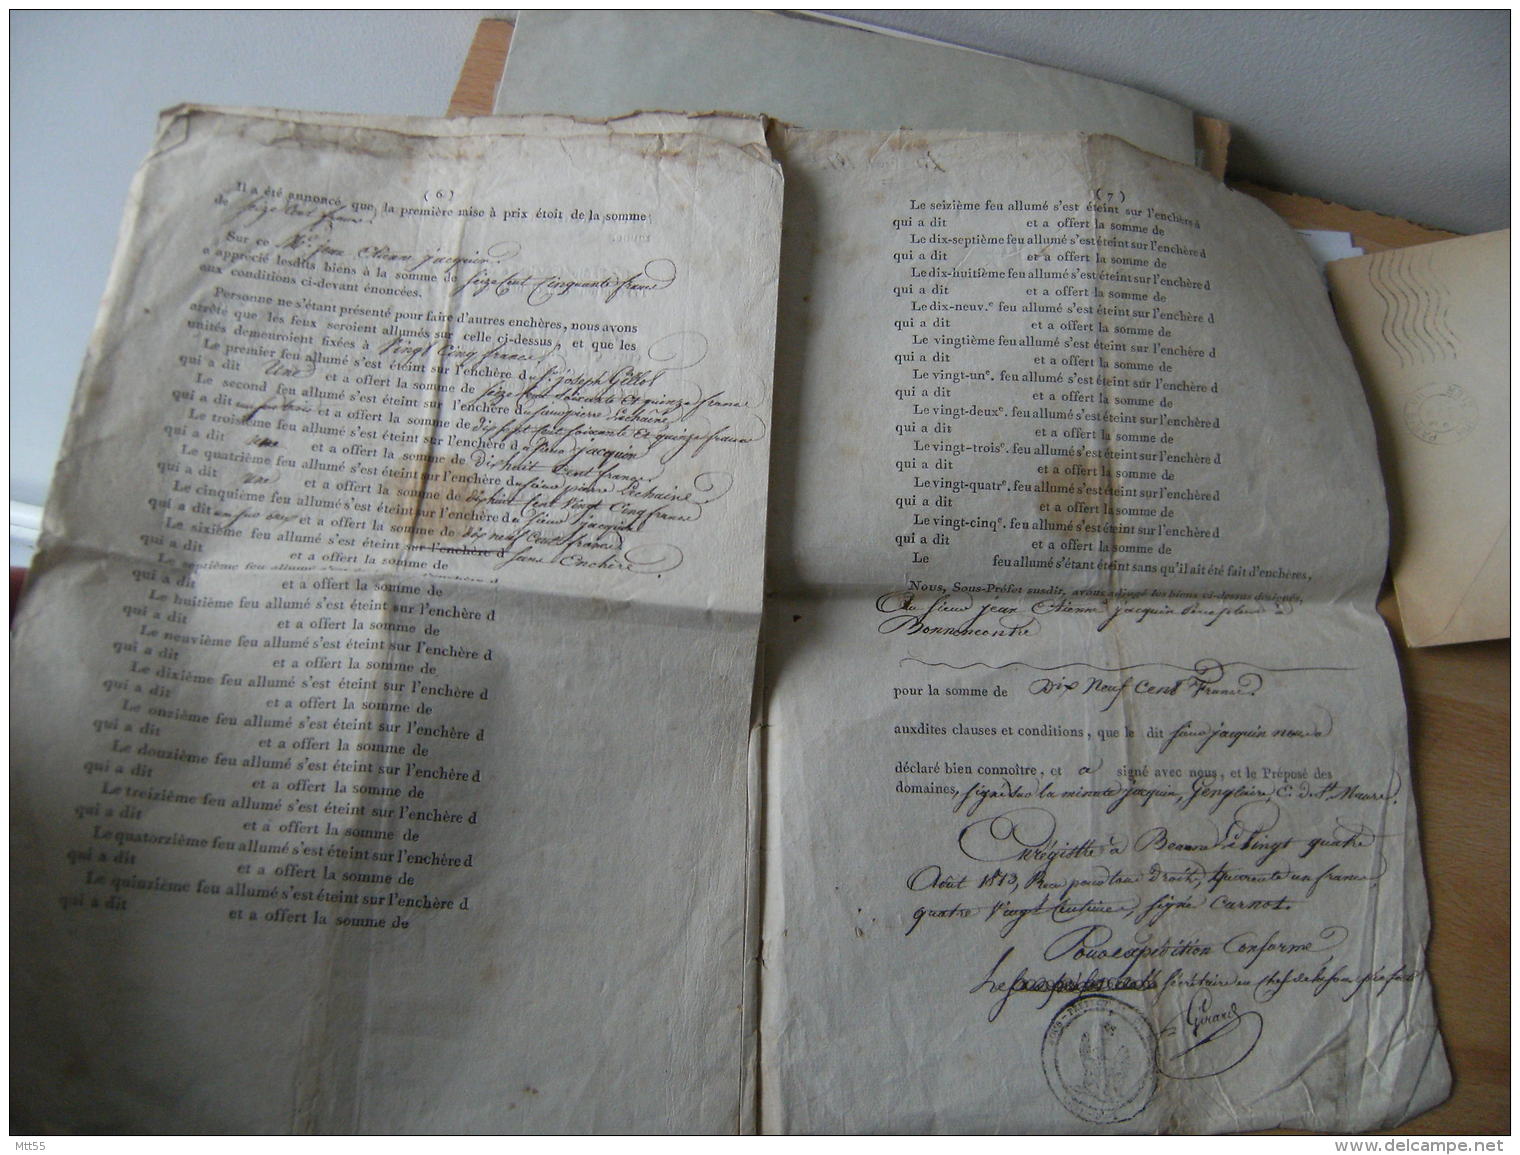 ( 6 )
Il a été annoncé que la première mise à prix étoit de la somme
de Seize Cent francs.
Sur ce Mr. Jean Etienne Jacquin
a apprécié lesdits biens à la somme de Seize Cent Cinquante francs
aux conditions ci-devant énoncées.
Personne ne s'étant présenté pour faire d'autres enchères, nous avons
arrêté que les feux seroient allumés sur celle ci-dessus, et que les
unités demeuroient fixées à Vingt Cinq francs
Le premier feu allumé s'est éteint sur l'enchère du Sr. Joseph Gillot
qui a dit Une et a offert la somme de Seize Cent Soixante et quinze francs
Le second feu allumé s'est éteint sur l'enchère du Sieur pierre Lechaine
qui a dit trois et a offert la somme de dix sept Cent soixante et quinze francs
Le troisième feu allumé s'est éteint sur l'enchère d Sieur Jacquin
qui a dit une et a offert la somme de Dix huit Cent francs
Le quatrième feu allumé s'est éteint sur l'enchère du Sieur pierre Lechaine
qui a dit une et a offert la somme de dix huit Cent Vingt Cinq francs
Le cinquième feu allumé s'est éteint sur l'enchère du Sieur Jacquin
qui a dit et a offert la somme de dix neuf Cents francs
Le sixième feu allumé s'est éteint sur l'enchère d Sans Enchère.
qui a dit et a offert la somme de
Le septième feu allumé s'est éteint sur l'enchère d
qui a dit et a offert la somme de
Le huitième feu allumé s'est éteint sur l'enchère d
qui a dit et a offert la somme de
Le neuvième feu allumé s'est éteint sur l'enchère d
qui a dit et a offert la somme de
Le dixième feu allumé s'est éteint sur l'enchère d
qui a dit et a offert la somme de
Le onzième feu allumé s'est éteint sur l'enchère d
qui a dit et a offert la somme de
Le douzième feu allumé s'est éteint sur l'enchère d
qui a dit et a offert la somme de
Le treizième feu allumé s'est éteint sur l'enchère d
qui a dit et a offert la somme de
Le quatorzième feu allumé s'est éteint sur l'enchère d
qui a dit et a offert la somme de
Le quinzième feu allumé s'est éteint sur l'enchère d
qui a dit et a offert la somme de
( 7 )
Le seizième feu allumé s'est éteint sur l'enchère d
qui a dit et a offert la somme de
Le dix-septième feu allumé s'est éteint sur l'enchère d
qui a dit et a offert la somme de
Le dix-huitième feu allumé s'est éteint sur l'enchère d
qui a dit et a offert la somme de
Le dix-neuv.e feu allumé s'est éteint sur l'enchère d
qui a dit et a offert la somme de
Le vingtième feu allumé s'est éteint sur l'enchère d
qui a dit et a offert la somme de
Le vingt-une. feu allumé s'est éteint sur l'enchère d
qui a dit et a offert la somme de
Le vingt-deuxe. feu allumé s'est éteint sur l'enchère d
qui a dit et a offert la somme de
Le vingt-troise. feu allumé s'est éteint sur l'enchère d
qui a dit et a offert la somme de
Le vingt-quatre. feu allumé s'est éteint sur l'enchère d
qui a dit et a offert la somme de
Le vingt-cinqe. feu allumé s'est éteint sur l'enchère d
qui a dit et a offert la somme de
Le feu allumé s'étant éteint sans qu'il ait été fait d'enchères,
Nous, Sous-Préfet susdit, avons adjugé les biens ci-dessus désignés,
Au Sieur Jean Etienne Jacquin à
Bonnencontre
pour la somme de Dix Neuf Cent Francs.
auxdites clauses et conditions, que le dit Sieur Jacquin nous a
déclaré bien connoître, et a signé avec nous, et le Préposé des
domaines, signé sur la minute Jacquin, Genglaire, C. de St. Maure.
Enrégistré à Beaune Le Vingt quatre
Août 1813, Reçu pour tous Droits, quarente un francs
quatre Vingt Centimes, signé Carnot.
Pour expédition Conforme
Le Sécrétaire en Chef de la Sous préfecture
Girard
Mtt55
www.delcampe.net